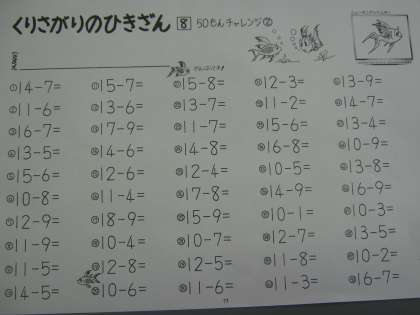 くりさがりのひきざん 8 50もんチャレンジ②
①14-7= ⑪15-7= ㉑15-8= ㉛12-3= ㊶13-9=
②11-6= ⑫13-6= ㉒13-7= ㉜11-2= ㊷14-7=
③16-7= ⑬17-9= ㉓11-7= ㉝15-6= ㊸13-4=
④13-5= ⑭14-6= ㉔14-8= ㉞16-8= ㊹10-9=
⑤15-6= ⑮12-6= ㉕12-4= ㉟10-5= ㊺13-8=
⑥10-8= ⑯11-4= ㉖17-8= ㊱14-9= ㊻16-9=
⑦12-9= ⑰18-9= ㉗15-9= ㊲10-1= ㊼10-3=
⑧11-9= ⑱10-4= ㉘10-7= ㊳12-7= ㊽13-5=
⑨11-5= ⑲12-8= ㉙12-5= ㊴11-8= ㊾10-2=
⑩14-5= ⑳10-6= ㉚11-6= ㊵11-3= ㊿16-7=